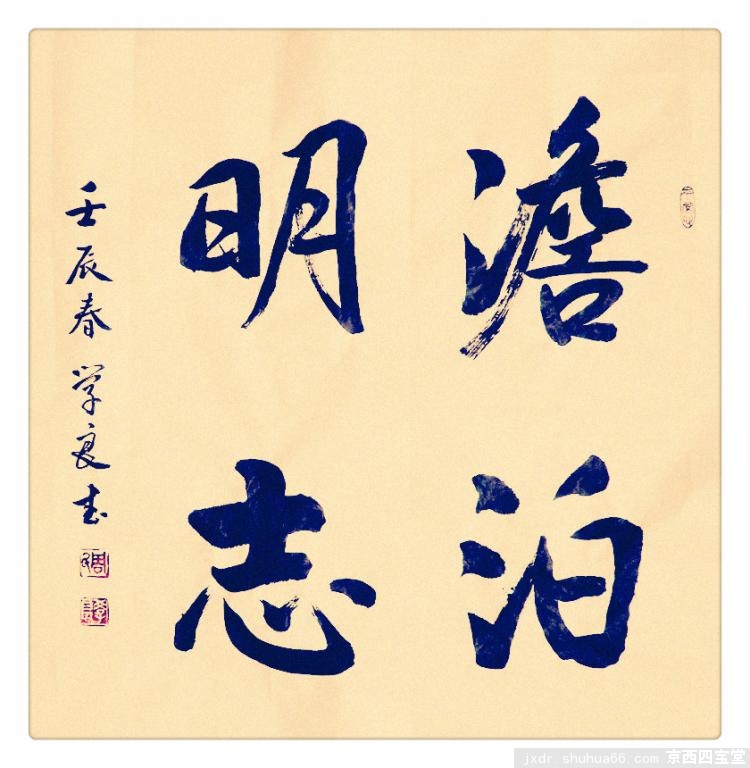 澹泊
明志
壬辰春学良书
jxdr.shuhua66.com 京西四宝堂